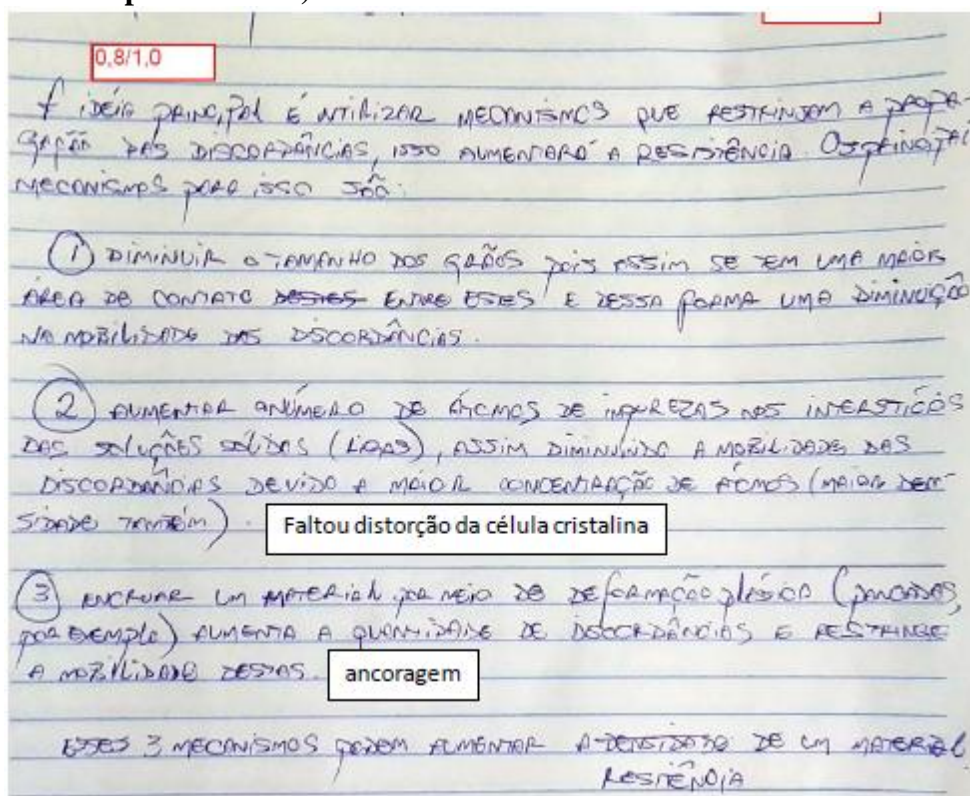 0,8/1,0
A IDÉIA PRINCIPAL É UTILIZAR MECANISMOS QUE RESTRINJAM A PROPA-
GAÇÃO DAS DISCORDÂNCIAS, ISSO AUMENTARÁ A RESISTÊNCIA. OS PRINCIPAI
MECANISMOS PARA ISSO SÃO:
1 DIMINUIR O TAMANHO DOS GRÃOS POIS ASSIM SE TEM UMA MAIOR
ÁREA DE CONTATO DESTES ENTRE ESTES E DESSA FORMA UMA DIMINUIÇÃO
NA MOBILIDADE DAS DISCORDÂNCIAS.
2 AUMENTAR O NÚMERO DE ÁTOMOS DE IMPUREZAS NOS INTERSTÍCIOS
DAS SOLUÇÕES SÓLIDAS (LIGAS), ASSIM DIMINUINDO A MOBILIDADE DAS
DISCORDÂNCIAS DEVIDO A MAIOR CONCENTRAÇÃO DE ÁTOMOS (MAIOR DEN-
SIDADE TAMBÉM).
Faltou distorção da célula cristalina
3 ENCRUAR UM MATERIAL POR MEIO DE DEFORMAÇÃO PLÁSICA (PANCADAS,
POR EXEMPLO) AUMENTA A QUANTIDADE DE DISCORDÂNCIAS E RESTRINGE
A MOBILIDADE DESTAS.
ancoragem
ESSES 3 MECANISMOS PODEM AUMENTAR A DENSIDADE DE UM MATERIAL.
RESITÊNCIA